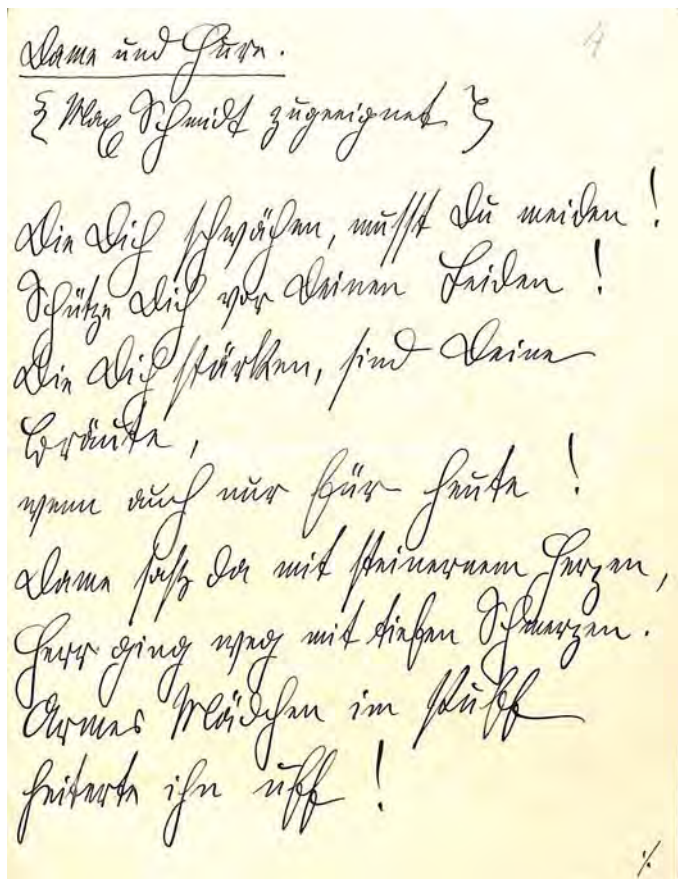 4
Dame und Hure.
{ Max Schmidt zugeeignet }
Die Dich schwächen, musst Du meiden !
Schütze Dich vor Deinen Leiden !
Die Dich stärken, sind Deine
Bräute,
wenn auch nur für heute !
Dame saß da mit steinernem Herzen,
Herr ging weg mit tiefen Schmerzen.
Armes Mädchen im Puff
heiterte ihn uff !
./.